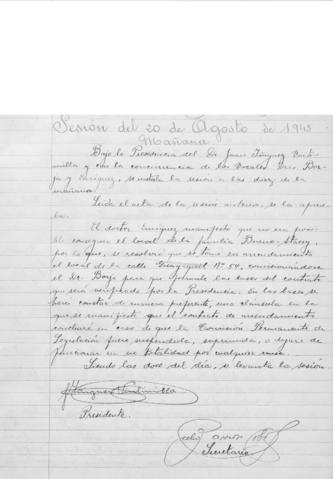 Sesión del 20 de Agosto de 1943
Mañana
Bajo la Presidencia del Dr. Juan Tánquez
y con la concurrencia de los Vocales Drs. Bor-
ja y Enríquez, se instala la sesión a las diez de la
mañana.
Leída el acta de la sesión anterior, se la aprue-
ba.
El doctor Enríquez manifestó que no era posi-
ble conseguir el local de la familia Bueno
por lo que, se resolvió que se tome en arrendamiento
el local de la calle Guayaquil Nº 54, comisionándose
al Dr. Borja para que formule las bases del contrato
que será verificado por la Presidencia. En las bases, se
hará constar de manera preferente, una cláusula en la
que se manifieste que el contrato de arrendamiento
concluirá en caso de que la Comisión Permanente de
Legislación fuere suspendida, suprimida, o dejare de
funcionar en su totalidad por cualquier causa.
Siendo las doce del día, se levanta la sesión.
Presidente.
Secretario